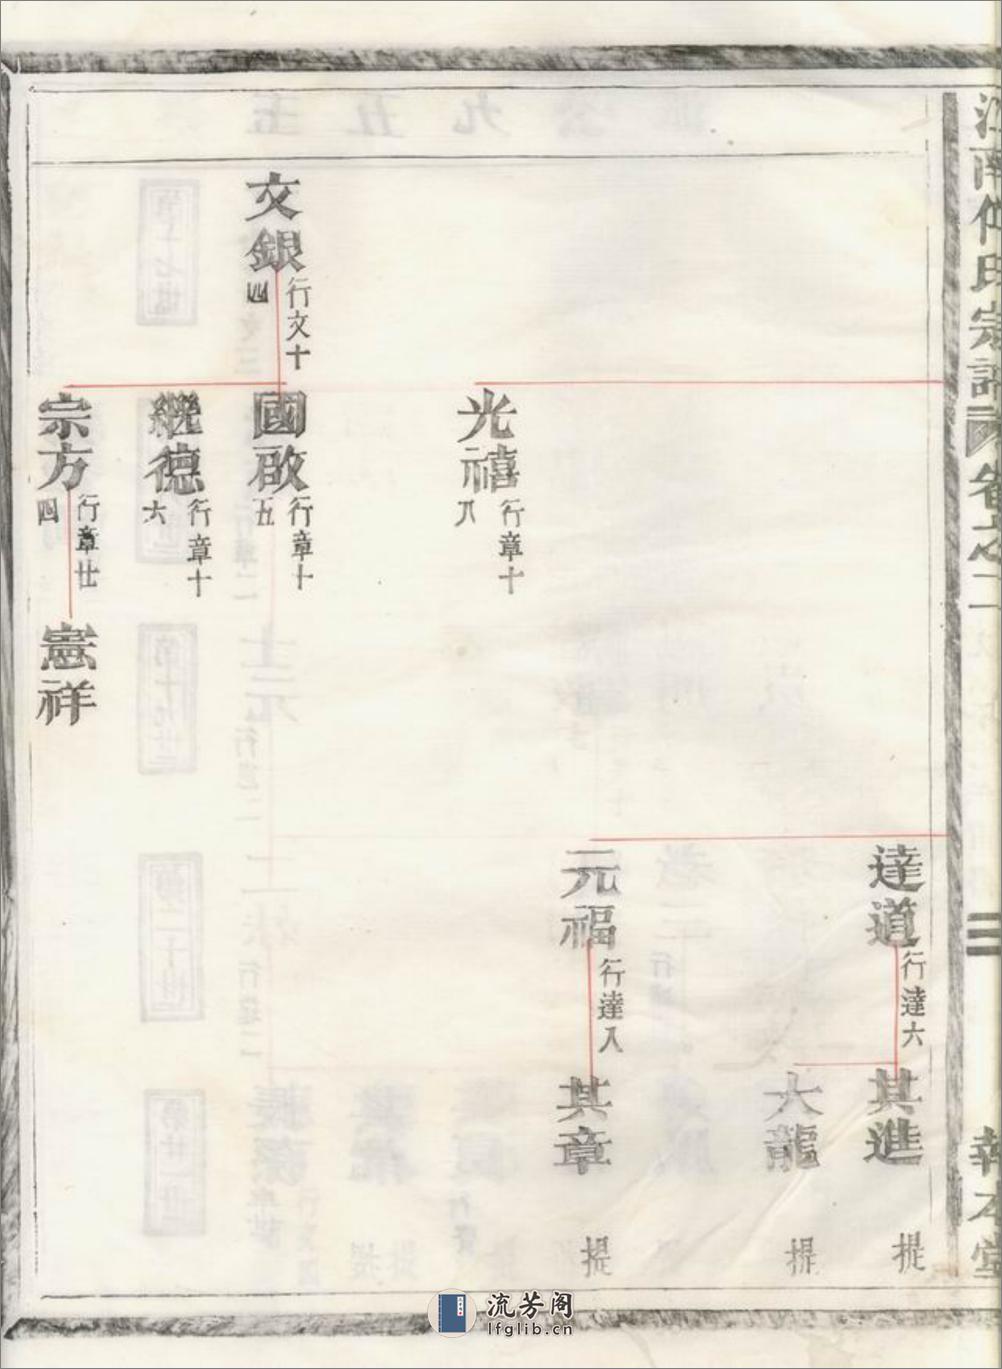 江南傅氏宗譜
卷之二
二
報本堂
達道 行達六
其進 提
大龍 提
元福 行達八
其章 提
光禧 行章十八
文銀 行文十四
國啟 行章十五
繼德 行章十六
宗方 行章廿四
憲祥
流芳阁
lfglib.cn